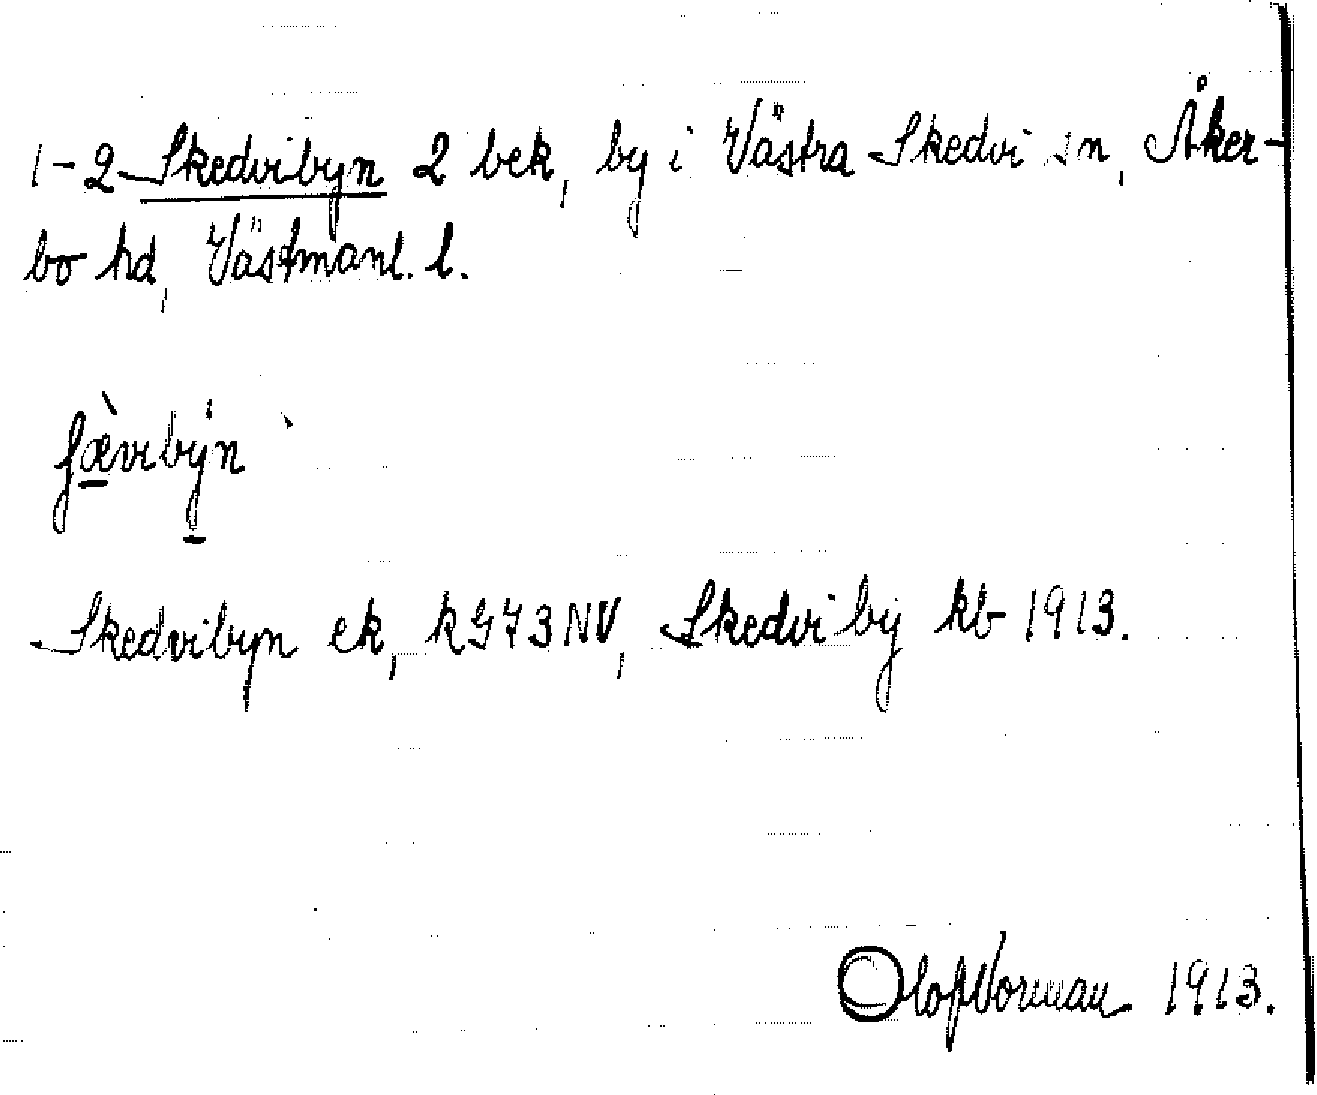 1-2 Skedvibyn 2 bek, by i Västra Skedvi sn, Åker-
bo hd, Västmanl. l.
ʃæ̀vibýn
Skedvibyn ek, kG73NV, Skedvi by kb 1913.
Olof Vorman 1913.